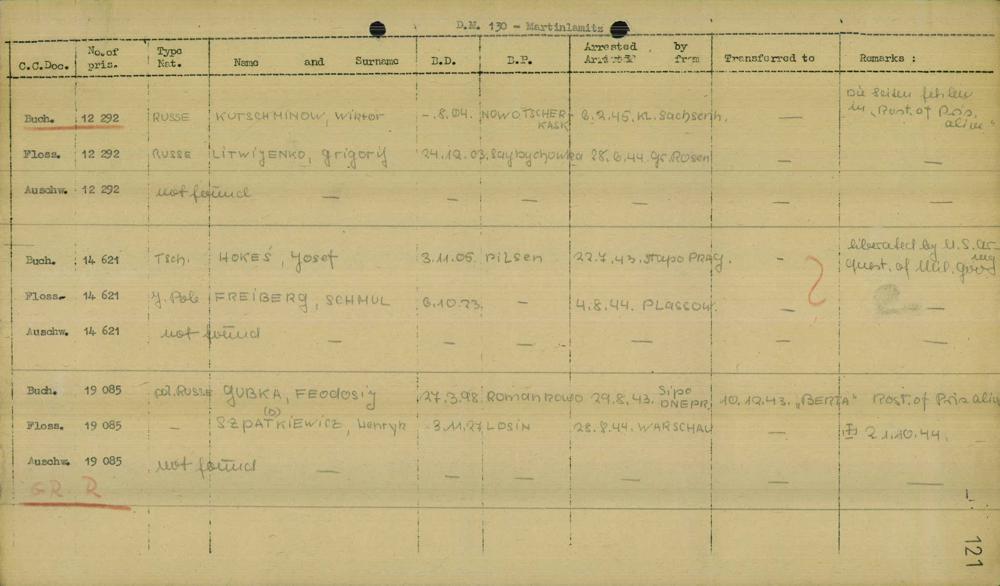 D.M. 130 - Martinlamitz
C.C.Doc. No. of pris. Type Nat. Name and Surname B.D. B.P. Arrested by
from Transferred to Remarks :
Die Seiten fehlen
in "Rost. of Pris.
alive"
Buch. 12 292 RUSSE KUTSCHMINOW, Wiktor -.8.04. NOWOTSCHERKASK 6.2.45. KL. Sachsenh. —
Floss. 12 292 RUSSE LITWIJENKO, Grigorij 24.12.03. 28.6.44. Gr. Rosen — —
Auschw. 12 292 not found — — — — — —
liberated by U.S. Army
Quest. of Mil. Gov.
Buch. 14 621 Tsch. HOKEŚ, Josef 3.11.05. PILSEN 22.7.43. Stapo PRAG. —
Floss. 14 621 J. Pole FREIBERG, SCHMUL 6.10.23. — 4.8.44. PLASSOW. — —
Auschw. 14 621 not found — — — — — —
Buch. 19 085 pol. RUSSE GUBKA, FEODOSIY 27.3.98. Romankowo 29.8.43. Sipo DNEPR. 10.12.43. "BERTA" Rost. of Pris alive
Floss. 19 085 — SZPATKIEWICZ, Henryk (O) 3.11.27 LOSIN 28.8.44. WARSCHAU 21.10.44.
Auschw. 19 085 not found — — — — — —
GR. R
121